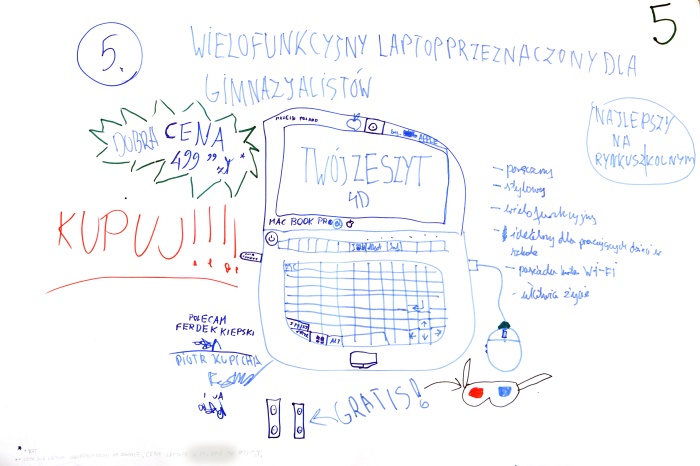 5
5.
WIELOFUNKCYJNY LAPTOP PRZEZNACZONY DLA
GIMNAZYALISTÓW
DOBRA CENA
499,,zł *
NAJLEPSZY
NA
RYNKU SZKOLNYM
KUPUJ!!!!
APPLE
TWÓJ ZESZYT
4D
MAC BOOK PRO
- poręczny
- stylowy
- wielofunkcyjny
- idealny dla pracujących dzieci w
szkole
- posiada Wi-Fi
- ułatwia życie
ALT
POLECAM
FERDEK KIEPSKI
PIOTR KUPICHA
GRATIS!